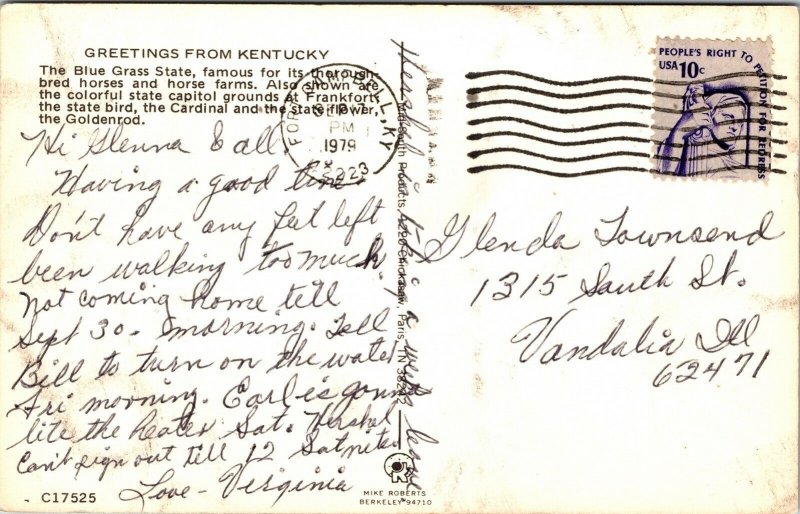 GREETINGS FROM KENTUCKY
The Blue Grass State, famous for its thorough-
bred horses and horse farms. Also shown are
the colorful state capitol grounds at Frankfort,
the state bird, the Cardinal and the state flower,
the Goldenrod.
FORT CAMPBELL, KY
SEP
PM
1979
42223
PEOPLE'S RIGHT TO PETITION FOR REDRESS
USA 10c
Hi Glenna & all
Having a good time
Don't have any feet left
been walking too much
Not coming home till
Sept 30. morning. Tell
Bill to turn on the water
Fri morning. Earl is gonna
lite the heater Sat. Hershel
Can't sign out till 12 Sat nite.
Love - Virginia
Hershel is taking a week leave
Mid-South Products Chickasaw, Paris, TN 38242
Glenda Townsend
1315 South St.
Vandalia Ill
62471
C17525
MIKE ROBERTS
BERKELEY 94710